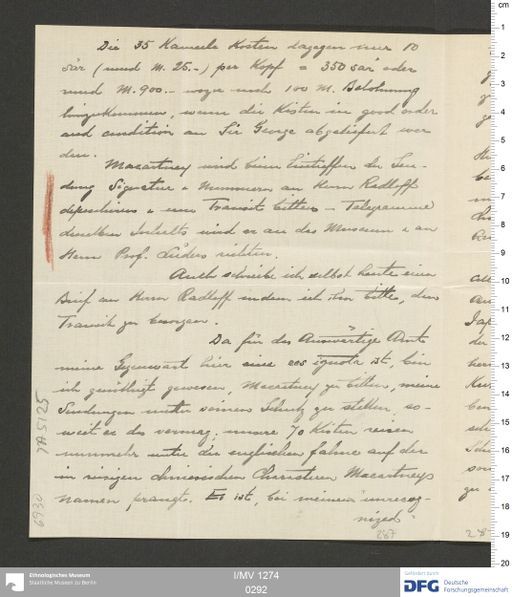 Die 35 Kameele kosten dagegen nur 10
sär (rund M. 25.–) per Kopf = 350 sär oder
rund M. 900.– wozu noch 100 M. Belohnung
hinzukommen, wenn die Kisten in good order
and condition an Sir George abgeliefert wer
den.
Macartney wird beim Eintreffen der Sen-
dung Signatur + Nummern an Herrn Radloff
depeschieren + um Transit bitten – Telegramme
desselben Inhalts wird er an das Museum + an
Herrn Prof. Lüders richten.
Auch schreibe ich selbst heute einen
Brief an Herrn Radloff indem ich ihn bitte, den
Transit zu besorgen.
Da für das Auswärtige Amt
meine Gegenwart hier eine res ignota ist, bin
ich genötigt gewesen, Macartney zu bitten, meine
Sendungen unter seinen Schutz zu stellen, so-
weit er das vermag; unsere 70 Kisten reisen
nunmehr unter der englischen Fahne auf der
in riesigen chinesischen Charakteren Macartneys
Namen prangt. Es ist, bei meinem "unrecog-
nized"
267
28
TA 5125
6930
cm
1
2
3
4
5
6
7
8
9
10
11
12
13
14
15
16
17
18
19
20
Ethnologisches Museum
Staatliche Museen zu Berlin
I/MV 1274
0292
Gefördert durch
DFG
Deutsche
Forschungsgemeinschaft